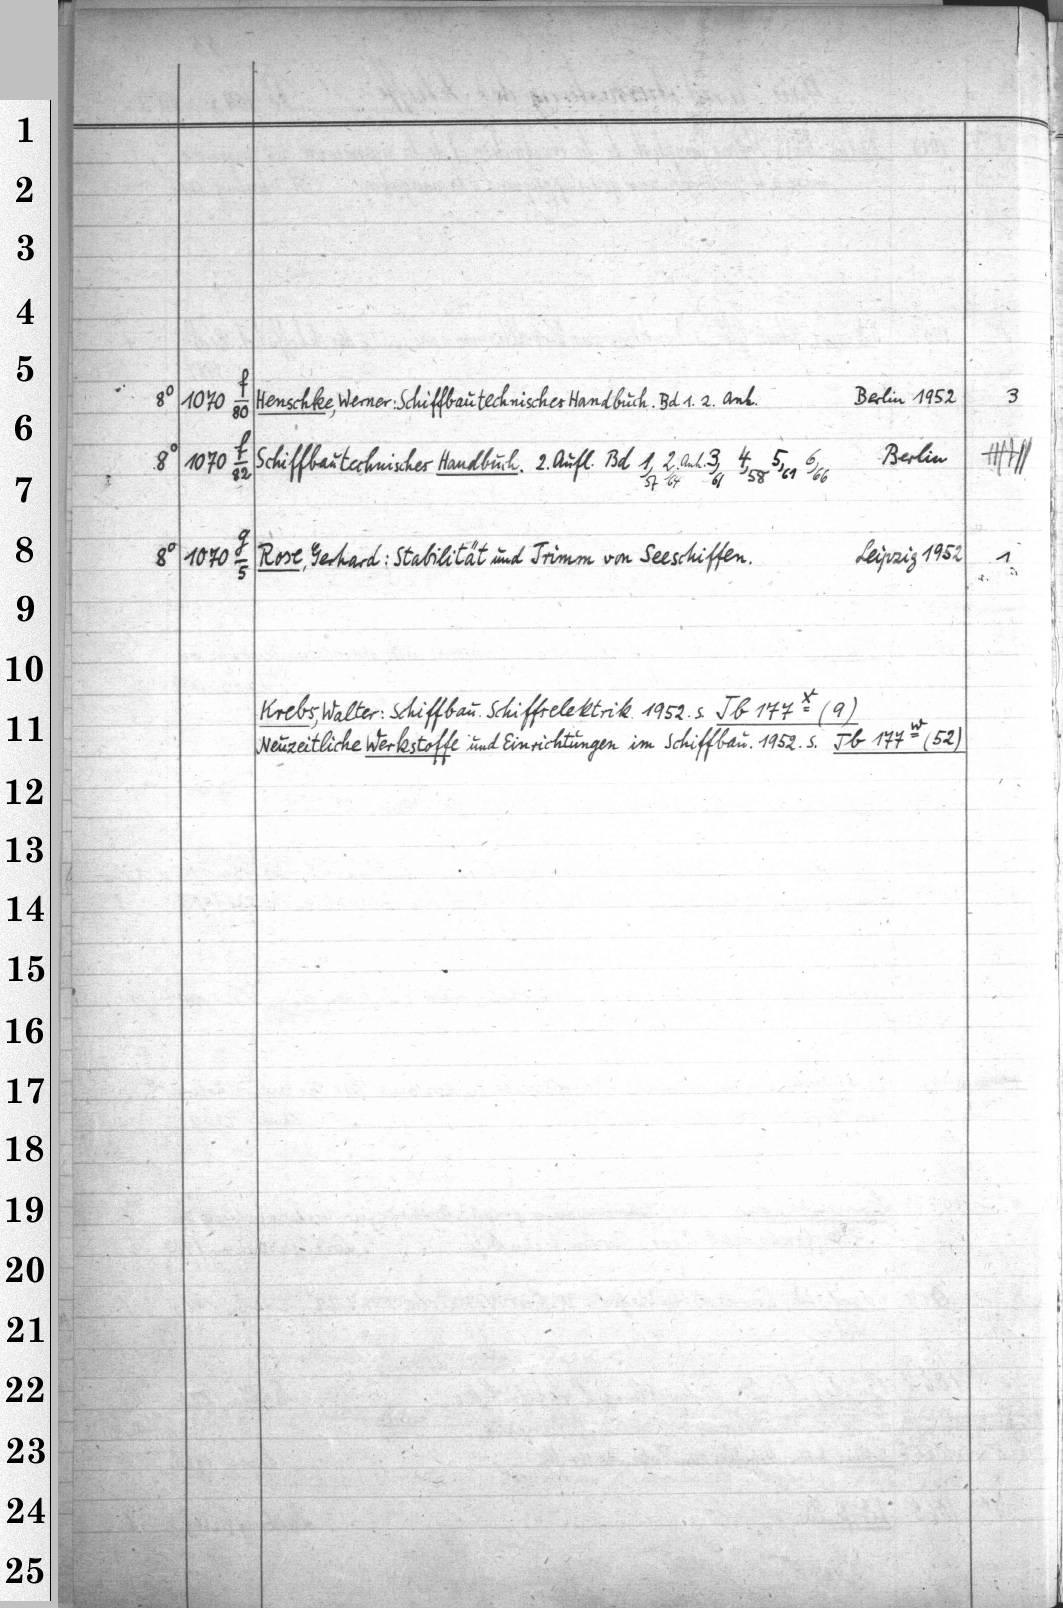 1
2
3
4
5
8° 1070 f/80 Henschke, Werner: Schiffbautechnisches Handbuch. Bd 1. 2. Anh. Berlin 1952 3
6
8° 1070 f/82 Schiffbautechnisches Handbuch. 2. Aufl. Bd 1,/57 2,/64 Anh. 3,/61 4,/58 5,/61 6/66 Berlin
7
8
8° 1070 g/5 Rose, Gerhard: Stabilität und Trimm von Seeschiffen. Leipzig 1952 1
9
10
Krebs, Walter: Schiffbau. Schiffselektrik. 1952. s. Jb 177 x (9)
11
Neuzeitliche Werkstoffe und Einrichtungen im Schiffbau. 1952. s. Jb 177 w (52)
12
13
14
15
16
17
18
19
20
21
22
23
24
25